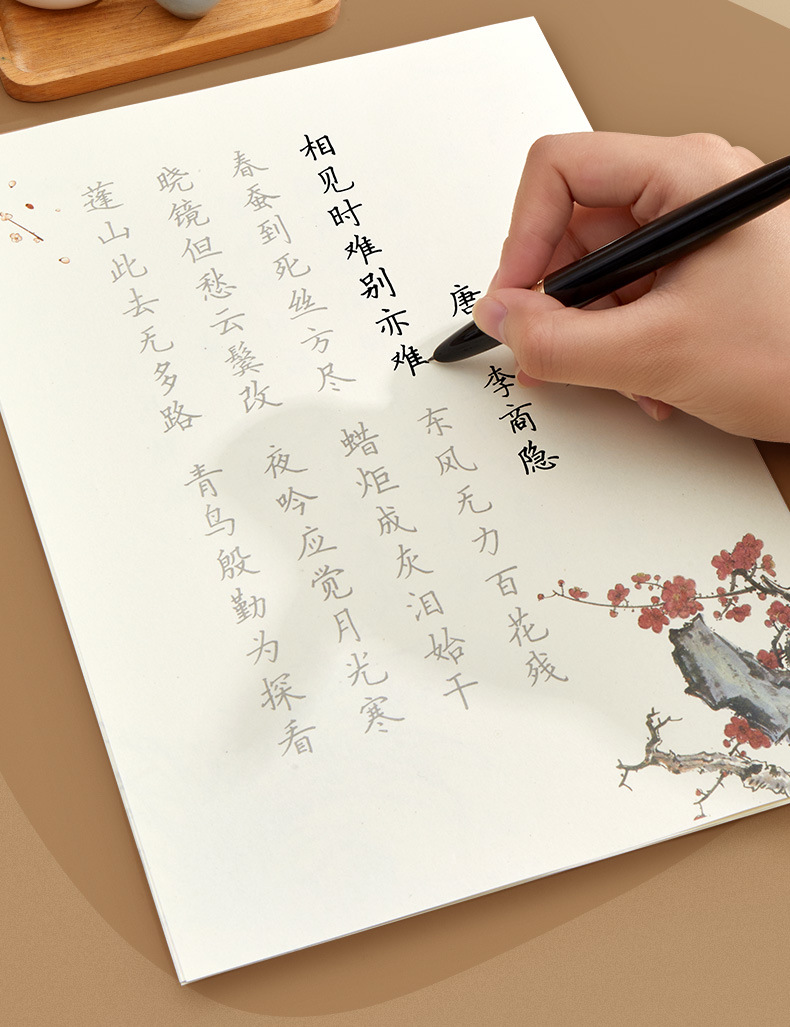 唐 李商隐
相见时难别亦难
东风无力百花残
春蚕到死丝方尽
蜡炬成灰泪始干
晓镜但愁云鬓改
夜吟应觉月光寒
蓬山此去无多路
青鸟殷勤为探看